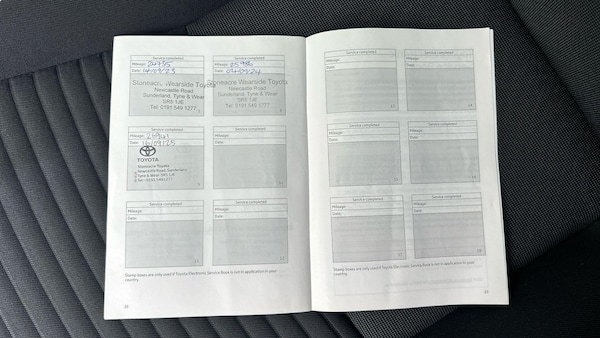 Service completed
Mileage:
Date: 04/09/23
Stoneacre Wearside Toyota
Newcastle Road
Sunderland, Tyne & Wear
SR5 1JE
Tel: 0191 549 1277
Service completed
Mileage:
Date: 04/09/24
Stoneacre Wearside Toyota
Newcastle Road
Sunderland, Tyne & Wear
SR5 1JE
Tel: 0191 549 1277
Service completed
Mileage:
Date: 16/09/25
TOYOTA
Stoneacre Toyota
Newcastle Road, Sunderland
Tyne & Wear SR5 1JE
Tel: 0191 5491277
Service completed
Mileage:
Date:
10
Service completed
Mileage:
Date:
11
Service completed
Mileage:
Date:
12
Stamp boxes are only used if Toyota Electronic Service Book is not in application in your
country.
Service completed
Mileage:
Date:
13
Service completed
Mileage:
Date:
14
Service completed
Mileage:
Date:
15
Service completed
Mileage:
Date:
Service completed
Mileage:
Date:
17
Service completed
Mileage:
Date:
18
Stamp boxes are only used if Toyota Electronic Service Book is not in application in your
country.